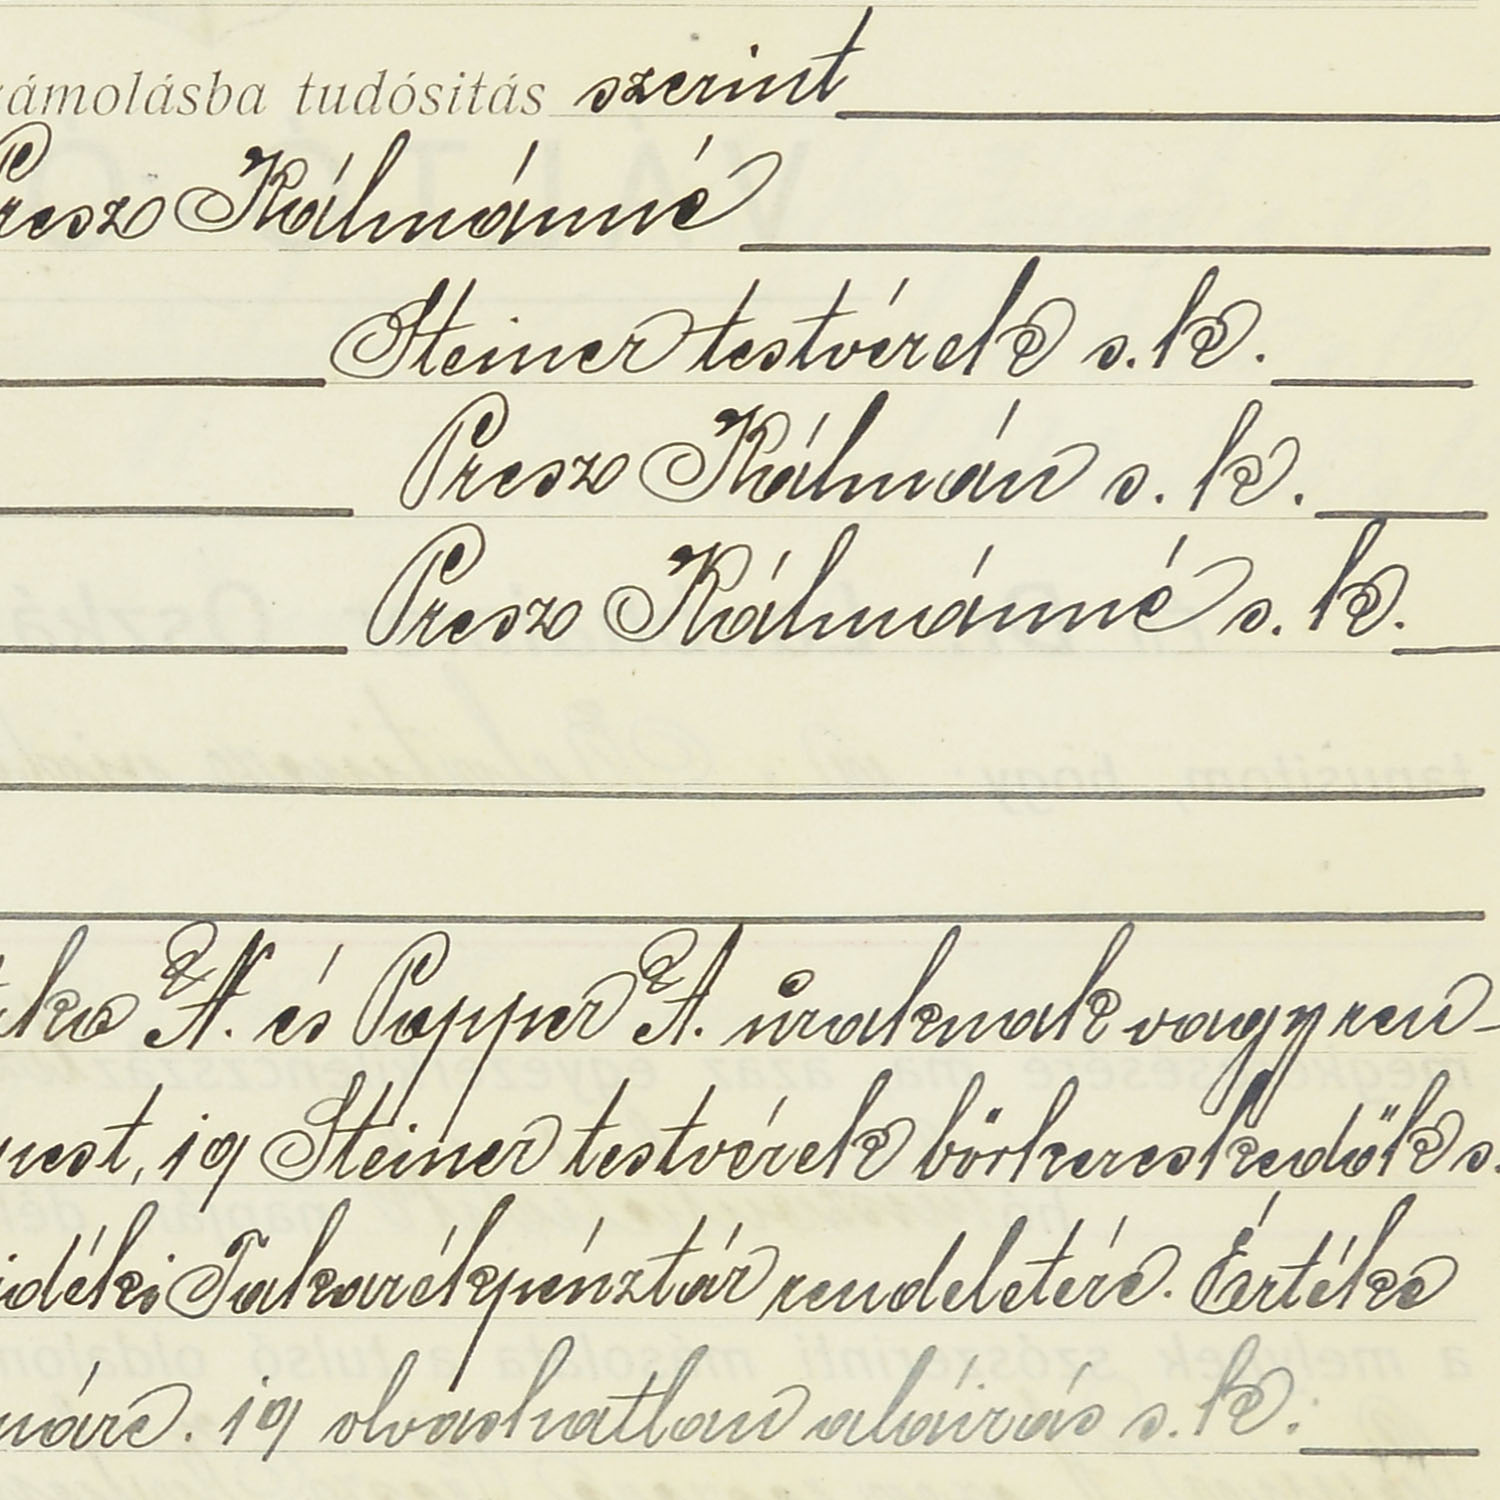 ámolásba tudósitás szerint
Presz Kálmánné
Steiner testvérek s. k.
Presz Kálmán s. k.
Presz Kálmánné s. k.
és Popper A. uraknak vagy ren-
19 Steiner testvérek börkereskedők s.
Takarékpénztár rendeletére. Értéke
19 olvashatlan aláirás s. k.